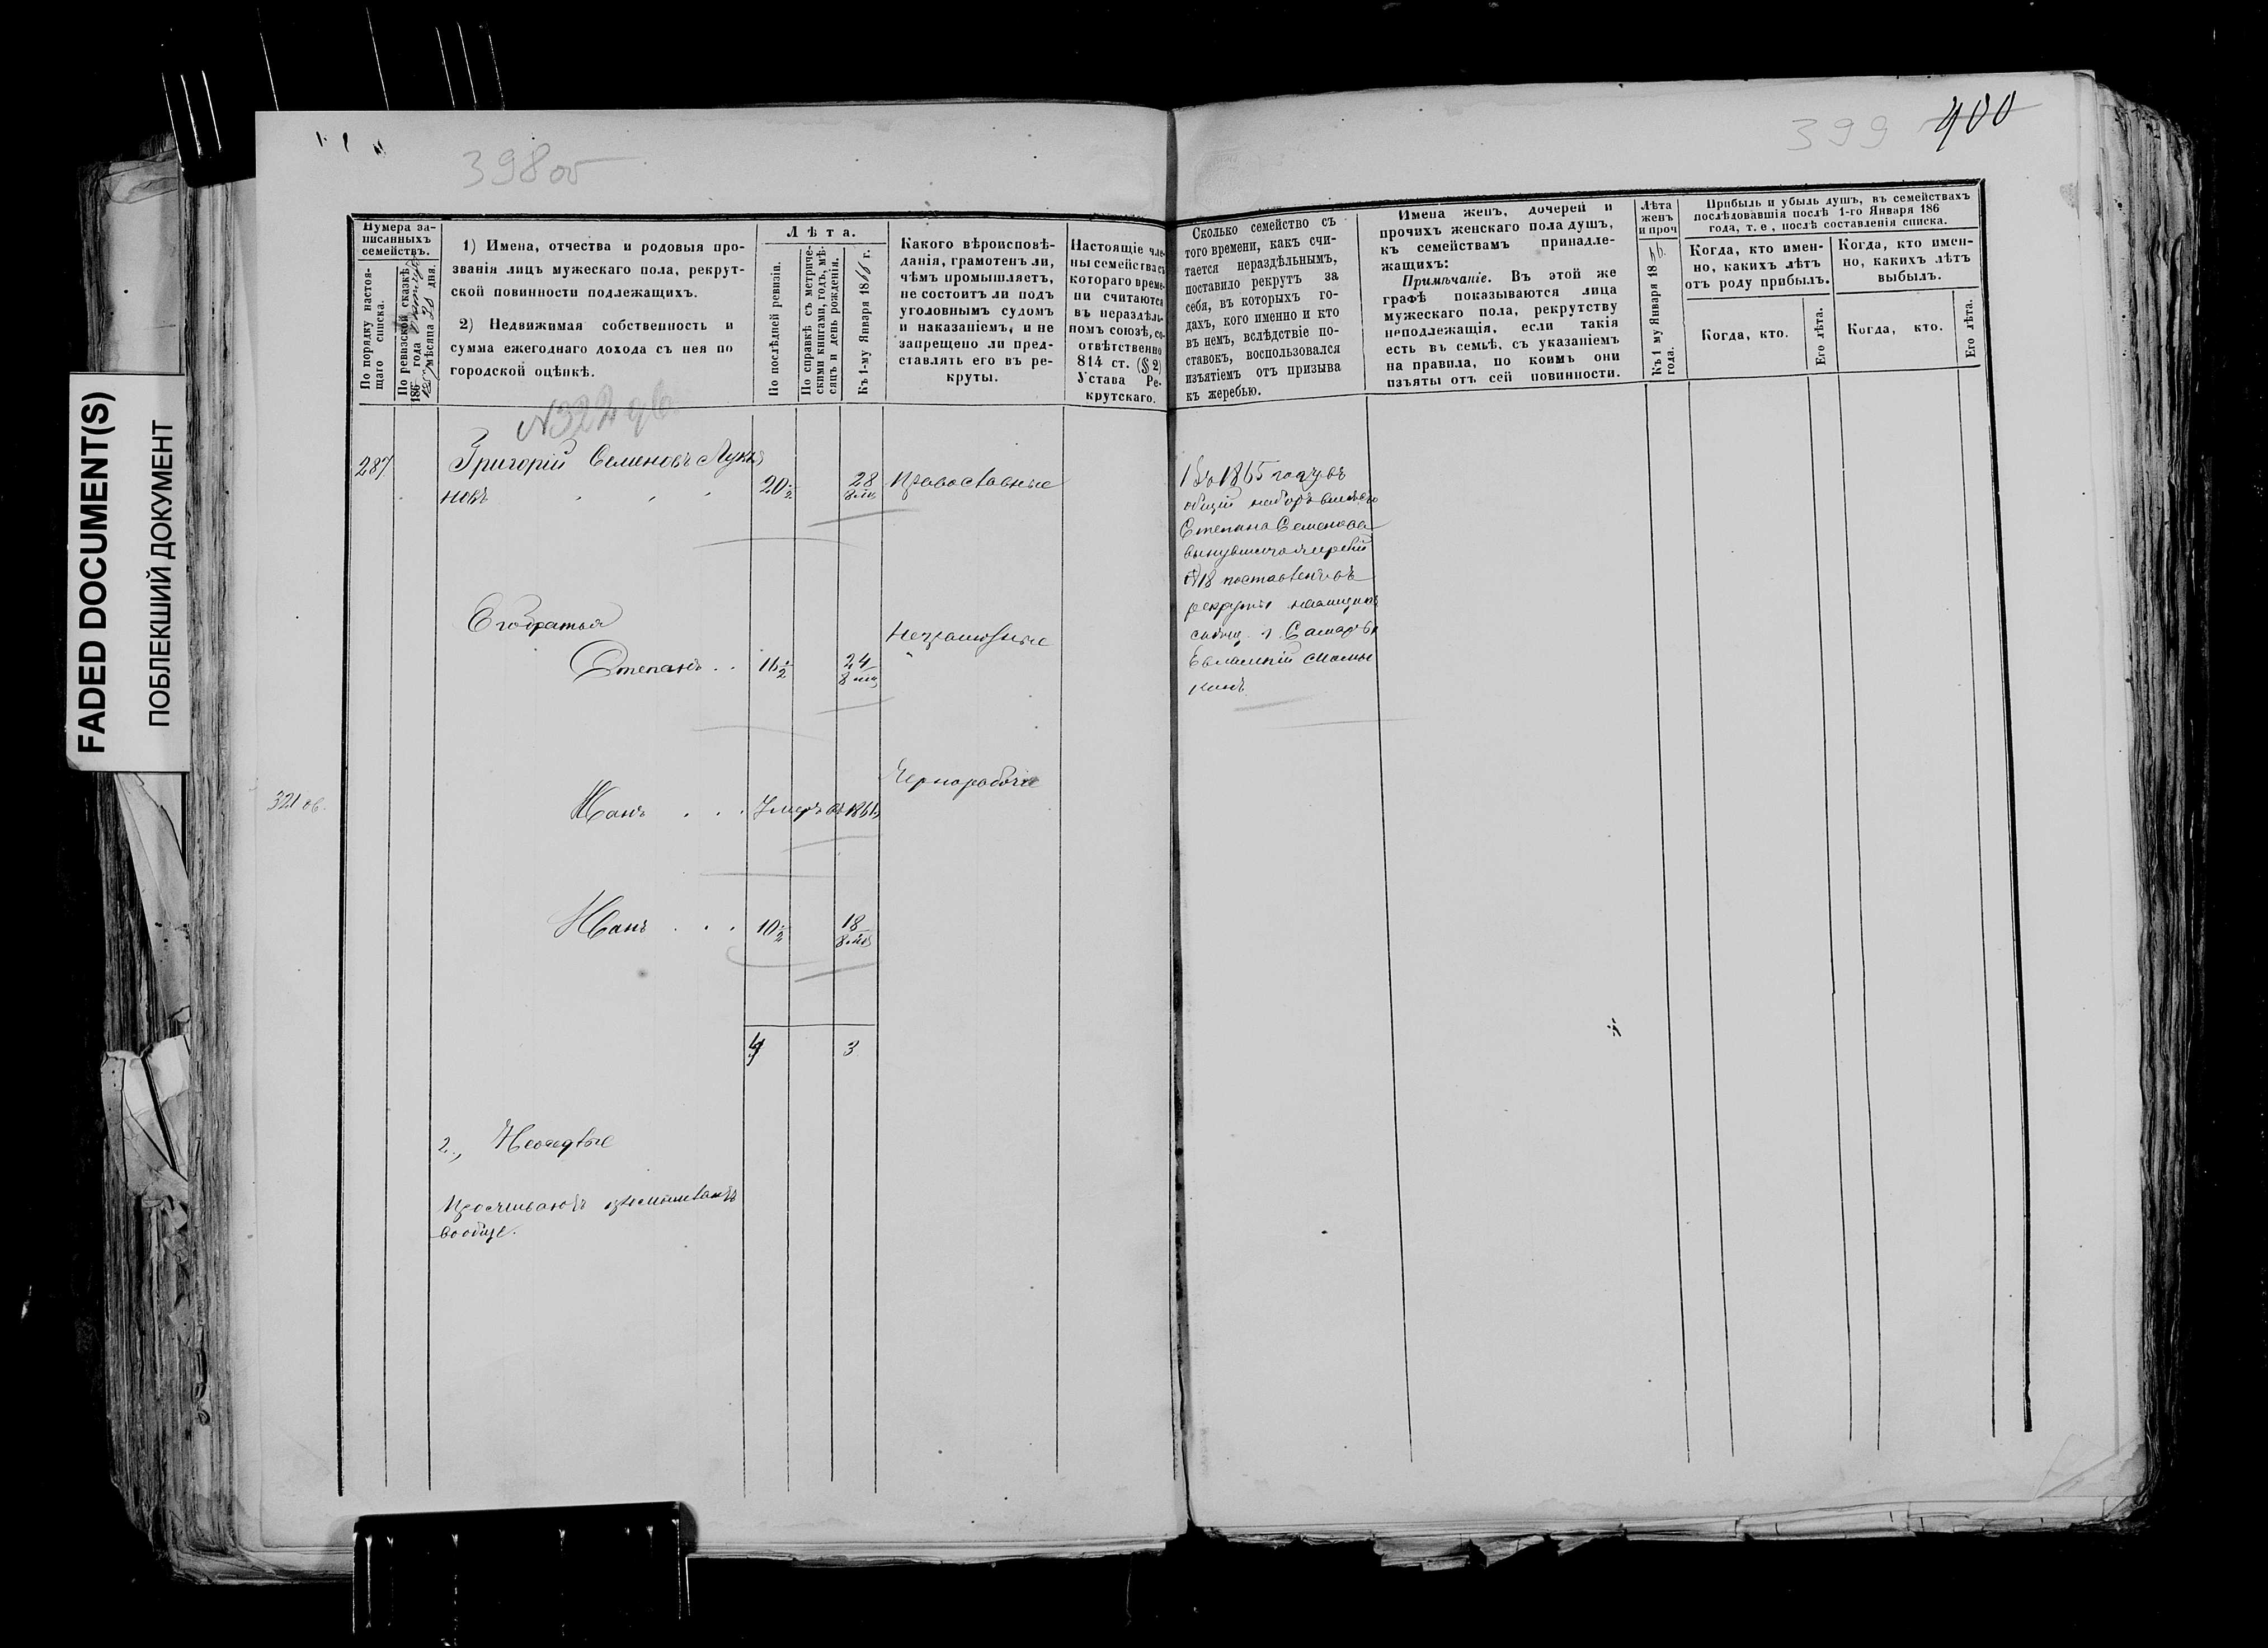 FADED DOCUMENT(S)
ПОБЛЕКШИЙ ДОКУМЕНТ
398 об
399 400
Нумера за-
писанныхъ
семействъ.
По порядку настоя-
щаго списка.
По ревизской сказкѣ
186 года
мѣсяца 28 дня.
1) Имена, отчества и родовыя про-
званія лицъ мужескаго пола, рекрут-
ской повинности подлежащихъ.
2) Недвижимая собственность и
сумма ежегоднаго дохода съ нея по
городской оцѣнкѣ.
Лѣта.
По послѣдней ревизіи.
По справкѣ съ метриче-
скими книгами, годъ, мѣ-
сяцъ и день рожденія.
Къ 1-му Января 1866 г.
Какого вѣроисповѣ-
данія, грамотенъ ли,
чѣмъ промышляетъ,
не состоитъ ли подъ
уголовнымъ судомъ
и наказаніемъ, и не
запрещено ли пред-
ставлять его въ ре-
круты.
Настоящіе чле-
ны семейства съ
котораго време-
ни считаются
въ нераздѣль-
номъ союзѣ, со-
отвѣтственно
814 ст. (§ 2)
Устава Ре-
крутскаго.
Сколько семейство съ
того времени, какъ счи-
тается нераздѣльнымъ,
поставило рекрутъ за
себя, въ которыхъ го-
дахъ, кого именно и кто
въ немъ, вслѣдствіе по-
ставокъ, воспользовался
изъятіемъ отъ призыва
къ жеребью.
Имена женъ, дочерей и
прочихъ женскаго пола душъ,
къ семействамъ принадле-
жащихъ:
Примѣчаніе. Въ этой же
графѣ показываются лица
мужескаго пола, рекрутству
неподлежащія, если такія
есть въ семьѣ, съ указаніемъ
на правила, по коимъ они
изъяты отъ сей повинности.
Лѣта
женъ
и проч
Къ 1 му Января 1866
года.
Прибыль и убыль душъ, въ семействахъ
послѣдовавшія послѣ 1-го Января 186
года, т. е, послѣ составленія списка.
Когда, кто имен-
но, какихъ лѣтъ
отъ роду прибылъ.
Когда, кто имен-
но, какихъ лѣтъ
выбылъ.
Когда, кто.
Его лѣта.
Когда, кто.
Его лѣта.
N 322
287 Григорій Семеновъ Лукья
новъ 20 1/2 28 8 мц Православные
Его братья
Неграмотные
Степанъ . . 16 1/2 24 8 мц
Чернорабочіе
321 об.
Иванъ . . . Умеръ въ 186
Иванъ . . . 10 1/2 18 8 мц
4 3
2.,
Проживаютъ
вообще.
1 Въ 1865 году въ
общій наборъ вмѣсто
Степана Семенова
вынувшаго жребій
N 18 поставленъ въ
рекруты
г. Самары